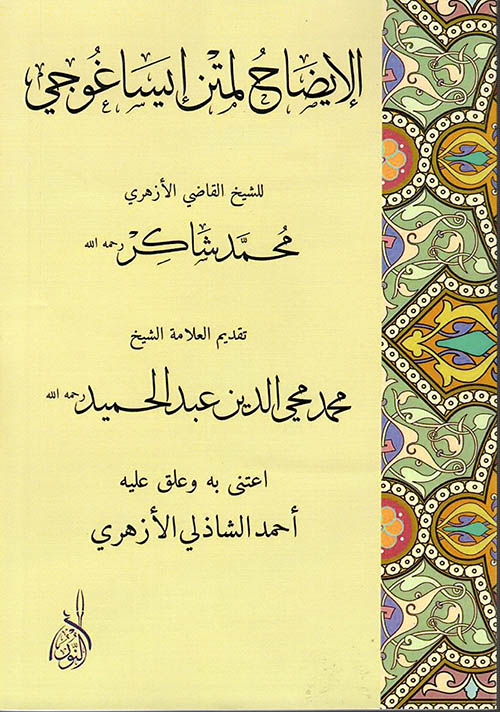 الإيضاح لمتن إيساغوجي
للشيخ القاضي الأزهري
محمد شاكر رحمه الله
تقديم العلامة الشيخ
محمد محي الدين عبد الحميد رحمه الله
اعتنى به وعلق عليه
أحمد الشاذلي الأزهري
النور